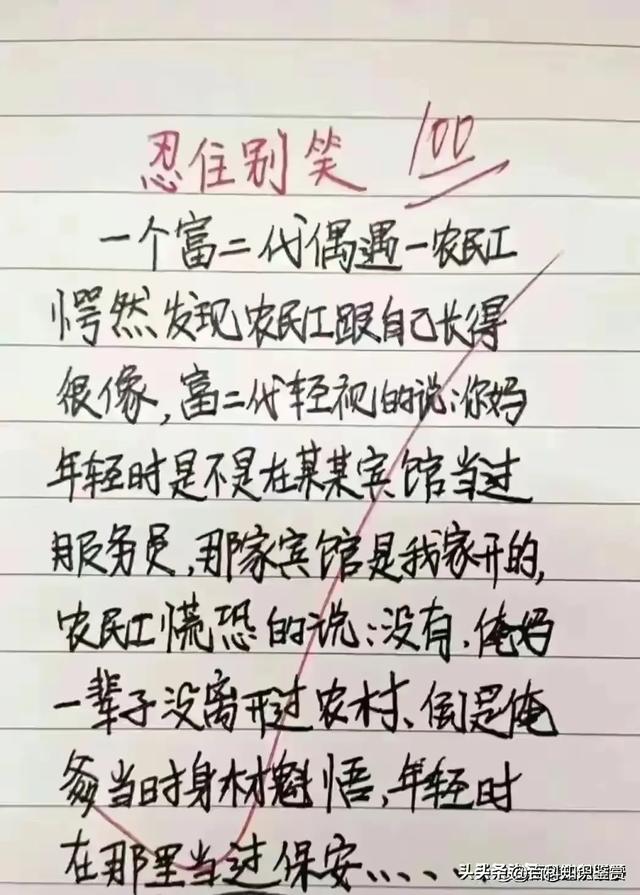 忍住别笑 100
一个富二代偶遇一农民工
愕然发现农民工跟自己长得
很像,富二代轻视的说:你妈
年轻时是不是在某某宾馆当过
服务员,那家宾馆是我家开的,
农民工慌恐的说:没有,俺妈
一辈子没离开过农村、倒是俺
爹当时身材魁悟,年轻时
在那里当过保安、、、、
头条 @百科知识鉴赏